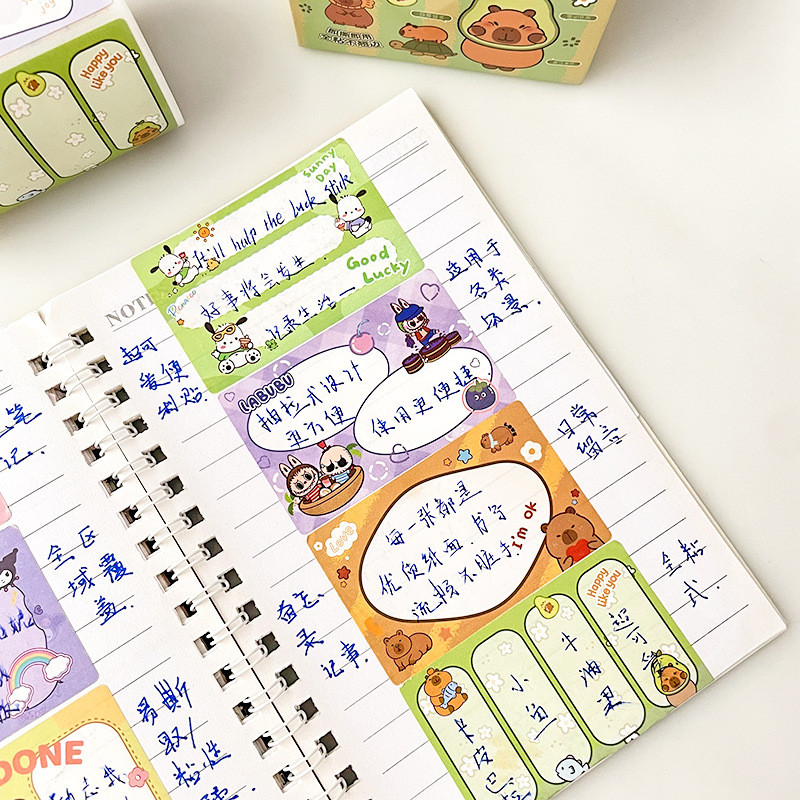 Happy
like you
全粘不翘边
NOT
Sunny
Day
Still hulp the luck stick
Good
Lucky
好事将会发生.
记录生活一
适用于
各类
场景.
超可
爱便
利贴.
笔
记.
LABUBU
抽拉式设计
更方便
使用更便捷
日常
留言
Love
每一张都是
优质纸面.书写
流畅不脏手
I'm OK
全粘
式.
全区
域覆
盖.
记事.
Happy
like you
卡皮巴
小鱼
牛油果
超可爱
DONE
易撕
取/
粘性